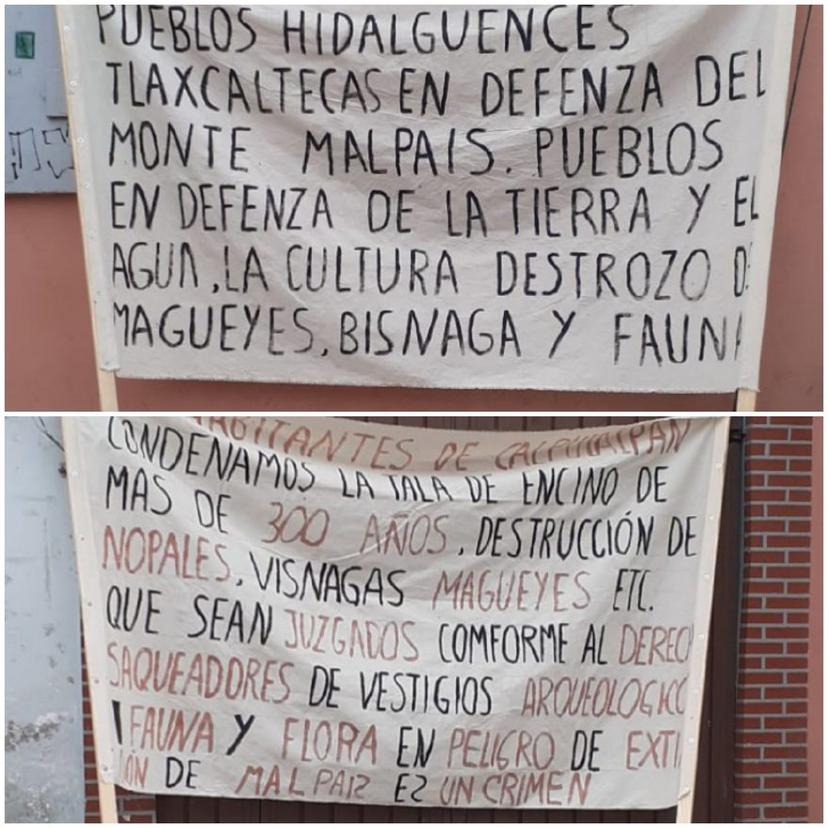 PUEBLOS HIDALGUENCES
TLAXCALTECAS EN DEFENZA DEL
MONTE MALPAIS. PUEBLOS
EN DEFENZA DE LA TIERRA Y EL
AGUA, LA CULTURA DESTROZO D
MAGUEYES, BISNAGA Y FAUN
HABITANTES DE CALPULALPAN
CONDENAMOS LA TALA DE ENCINO DE
MAS DE 300 AÑOS, DESTRUCCIÓN DE
NOPALES, VISNAGAS MAGUEYES ETC.
QUE SEAN JUZGADOS COMFORME AL DEREC
SAQUEADORES DE VESTIGIOS ARQUEOLOGICO
FAUNA Y FLORA EN PELIGRO DE EXTI
ION DE MALPAIZ EZ UN CRIMEN